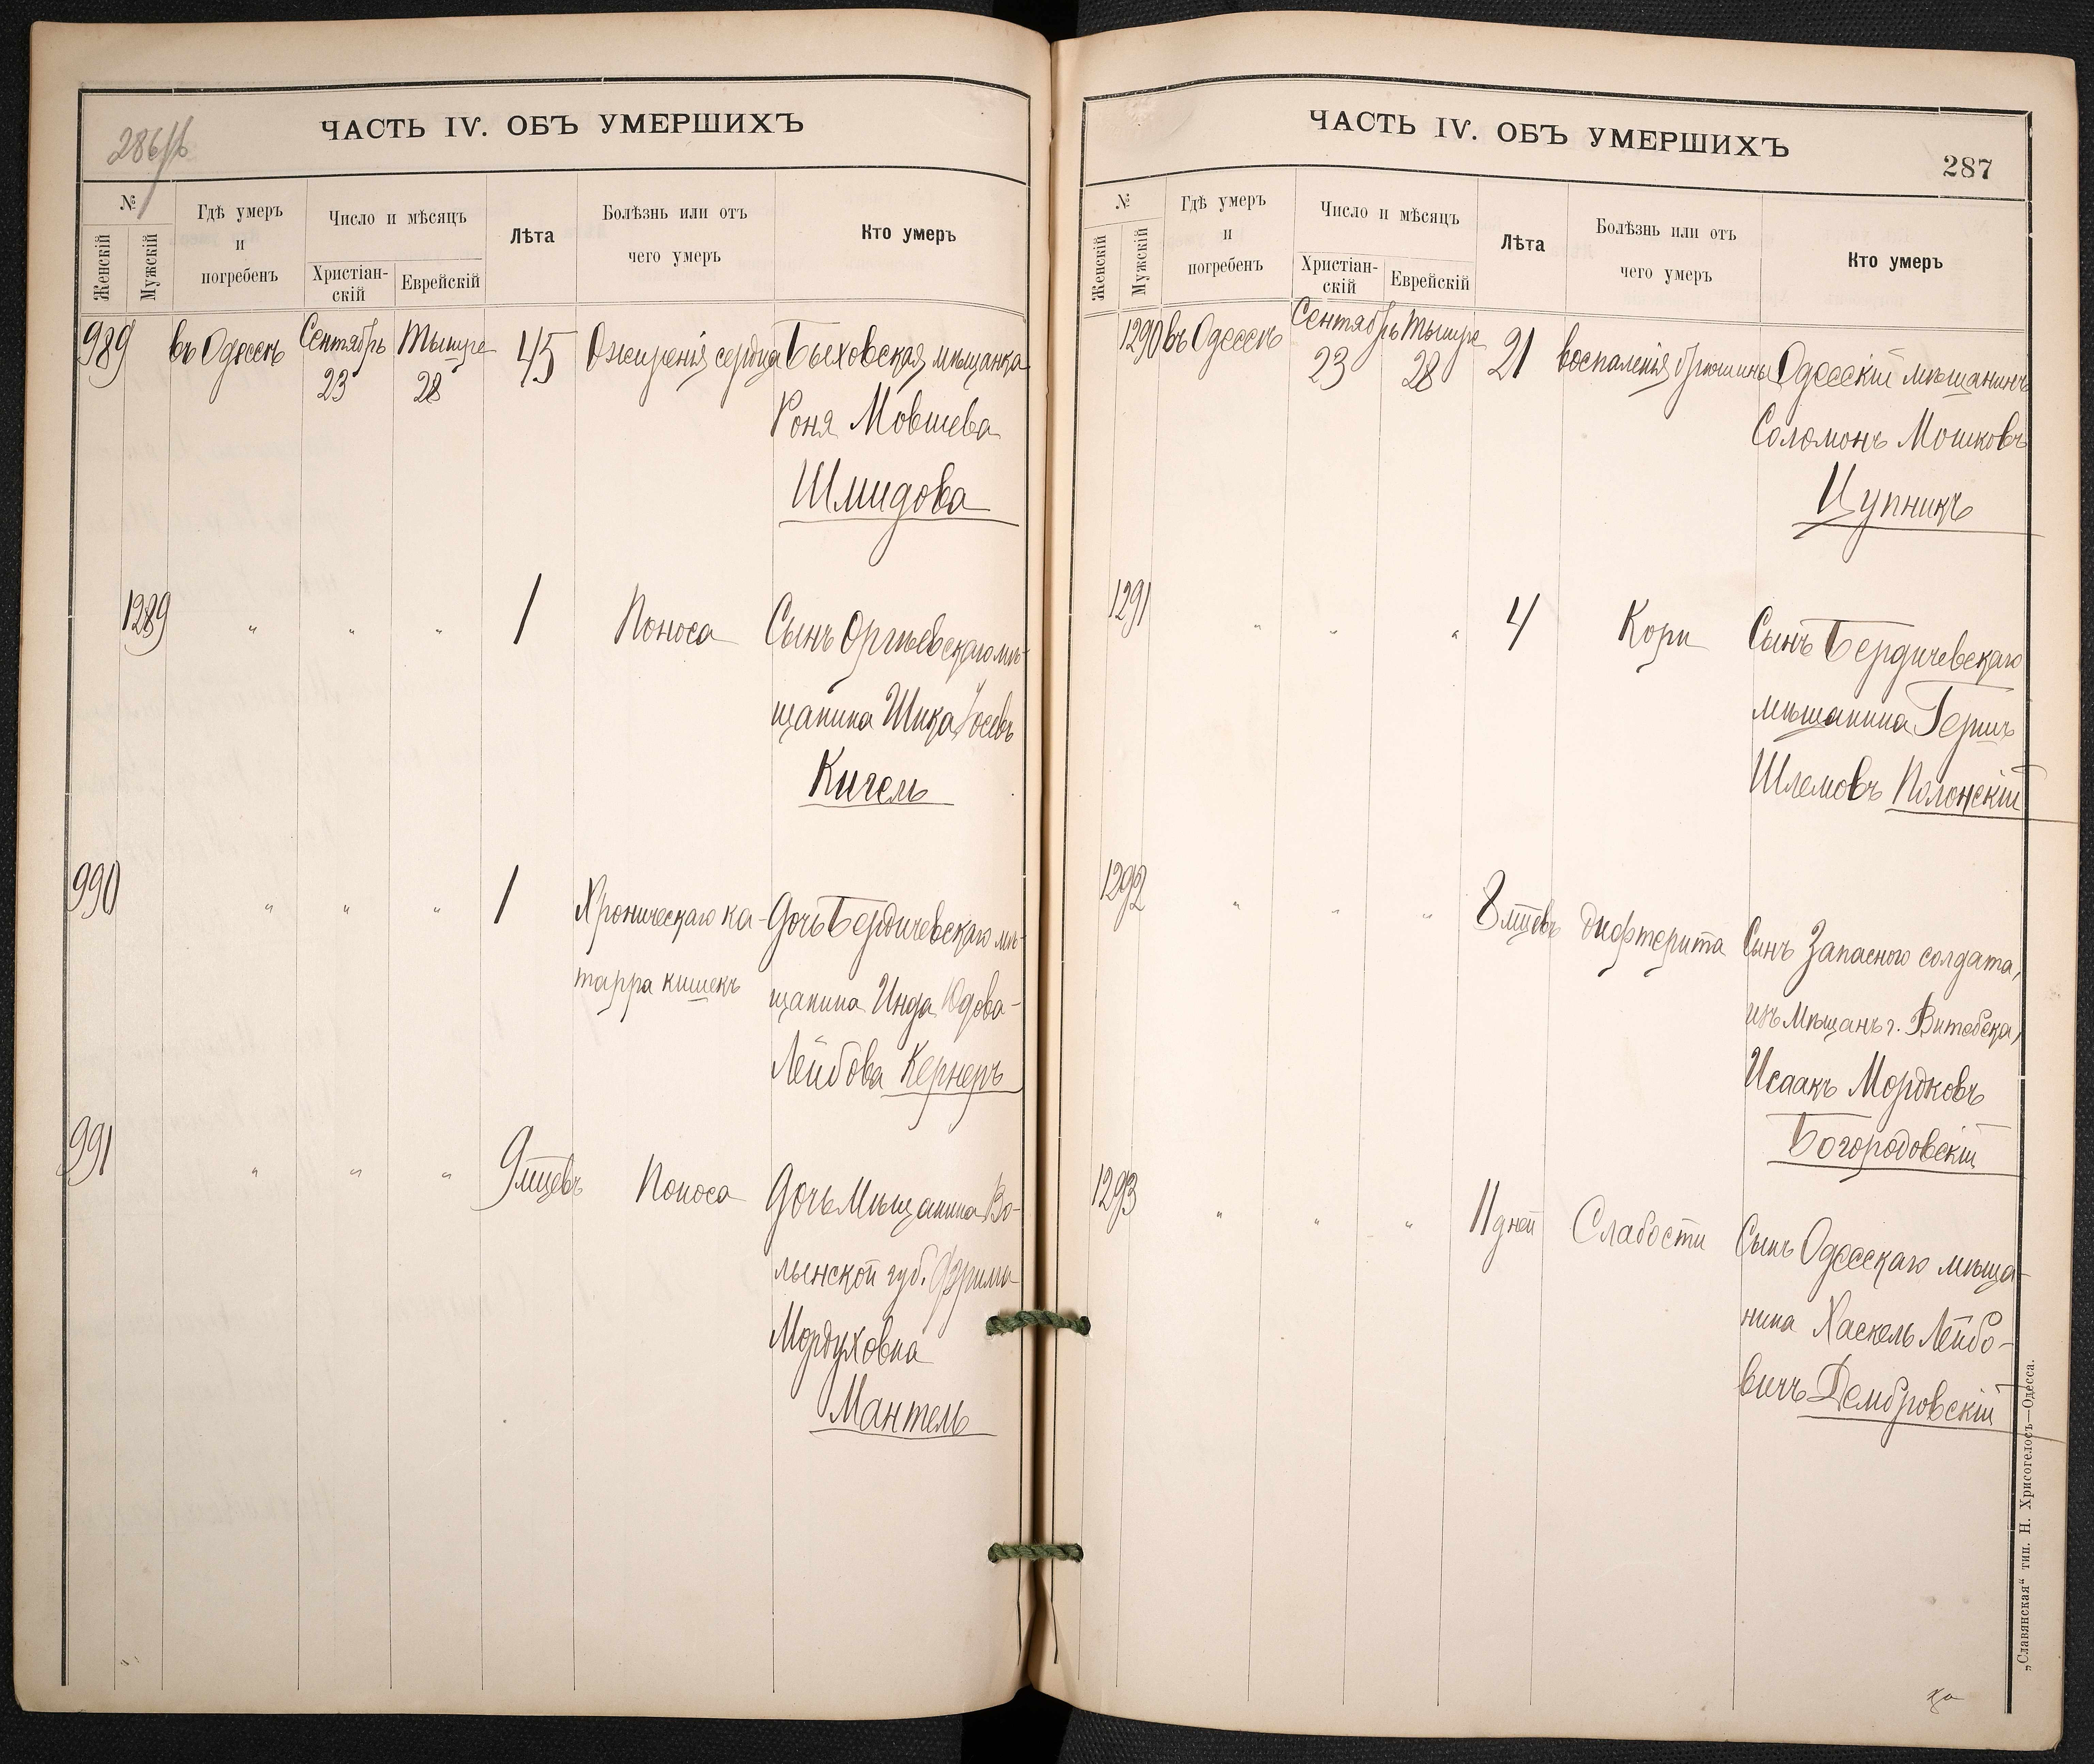 286/б
ЧАСТЬ IV. ОБЪ УМЕРШИХЪ
№
Женскій
Мужскій
Гдѣ умеръ
и
погребенъ
Число и мѣсяцъ
Христіан-
скій
Еврейскій
Лѣта
Болѣзнь или отъ
чего умеръ
Кто умеръ
989 въ Одессѣ Сентябрь 23 Тышре 28 45 Ожиренія сердца Быховская мѣщанка
Роня Мовшева
Шмидова
1289 " " " 1 Поноса Сынъ Оргѣевскаго мѣ-
щанина Шика Іосевъ
Кигель
990 " " " 1 Хроническаго ка- Дочь Бердичевскаго мѣ-
тарра кишекъ щанина Инда Юдова-
Лейбова Кернеръ
991 " " " 9 мѣцевъ Поноса Дочь Мѣщанина Во-
лынской губ. Фрима
Мордуховна
Мантель
ЧАСТЬ IV. ОБЪ УМЕРШИХЪ
287
№
Женскій
Мужскій
Гдѣ умеръ
и
погребенъ
Число и мѣсяцъ
Христіан-
скій
Еврейскій
Лѣта
Болѣзнь или отъ
чего умеръ
Кто умеръ
1290 въ Одессѣ Сентябрь 23 Тышре 28 21 воспаленія брюшины Одесскій мѣщанинъ
Соломонъ Мошковъ
Цупникъ
1291 " " " 4 Кори Сынъ Бердичевскаго
мѣщанина Гершъ
Шлемовъ Полонскій
1292 " " " 8 мѣцевъ Дифтерита Сынъ Запасного солдата,
изъ Мѣщанъ г. Витебска,
Исаакъ Мордковъ
Богородовскій
1293 " " " 11 дней Слабости Сынъ Одесскаго мѣща-
нина Хаскель Лейбо-
вичъ Дембровскій
„Славянская“ тип. Н. Хрисогелосъ—Одесса.